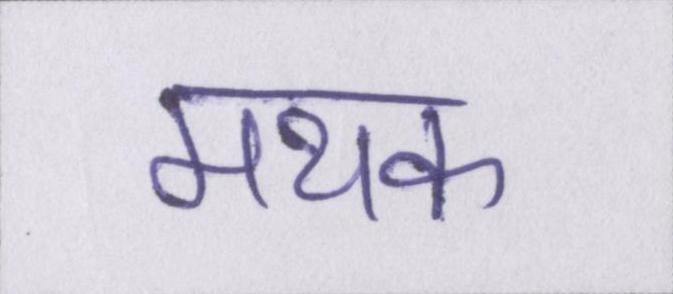 मथक